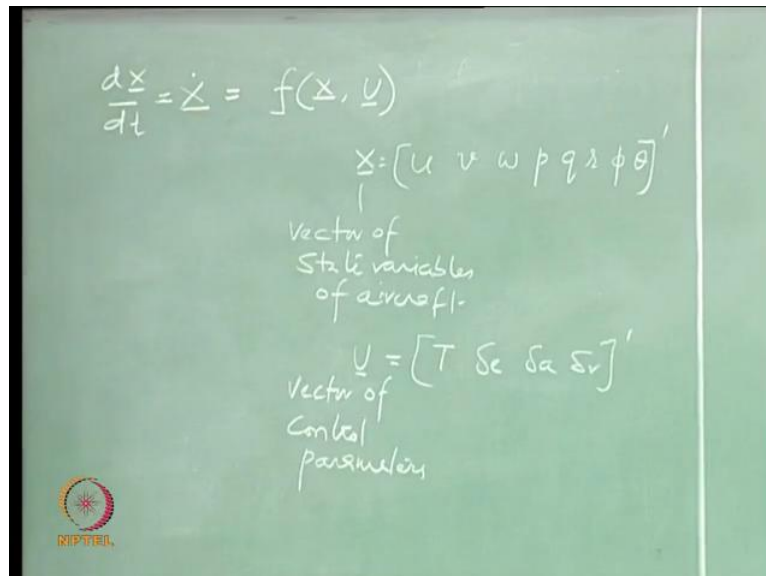 dx/dt = ẋ = f(x, U)
x = [u v w p q r φ θ]'
Vector of
State variables
of aircraft.
U = [T δe δa δr]'
Vector of
Control
parameters
NPTEL